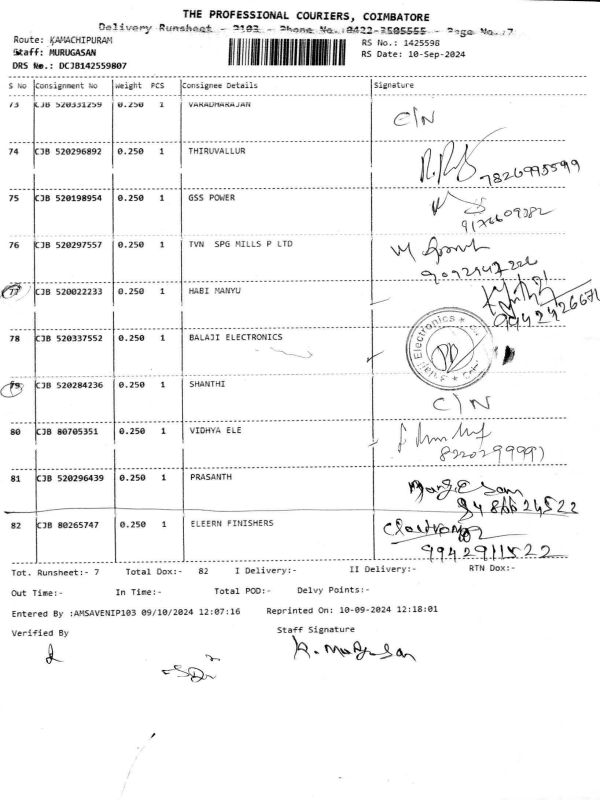 THE PROFESSIONAL COURIERS, COIMBATORE
Delivery Runsheet - P103 - Phone No.:0422-3505555 - Page No.:7
Route: KAMACHIPURAM
Staff: MURUGASAN
DRS No.: DCJB142559807
RS No.: 1425598
RS Date: 10-Sep-2024
S No Consignment No Weight PCS Consignee Details Signature
73 CJB 520331259 0.250 1 VARADHARAJAN C/N
74 CJB 520296892 0.250 1 THIRUVALLUR
7826995599
75 CJB 520198954 0.250 1 GSS POWER
9176609382
76 CJB 520297557 0.250 1 TVN SPG MILLS P LTD
77 CJB 520022233 0.250 1 HABI MANYU
9942426671
78 CJB 520337552 0.250 1 BALAJI ELECTRONICS
Electronics
79 CJB 520284236 0.250 1 SHANTHI C/N
80 CJB 80705351 0.250 1 VIDHYA ELE
81 CJB 520296439 0.250 1 PRASANTH
9486624522
82 CJB 80265747 0.250 1 ELEERN FINISHERS
9942911522
Tot. Runsheet:- 7 Total Dox:- 82 I Delivery:- II Delivery:- RTN Dox:-
Out Time:- In Time:- Total POD:- Delvy Points:-
Entered By :AMSAVENIP103 09/10/2024 12:07:16 Reprinted On: 10-09-2024 12:18:01
Verified By Staff Signature